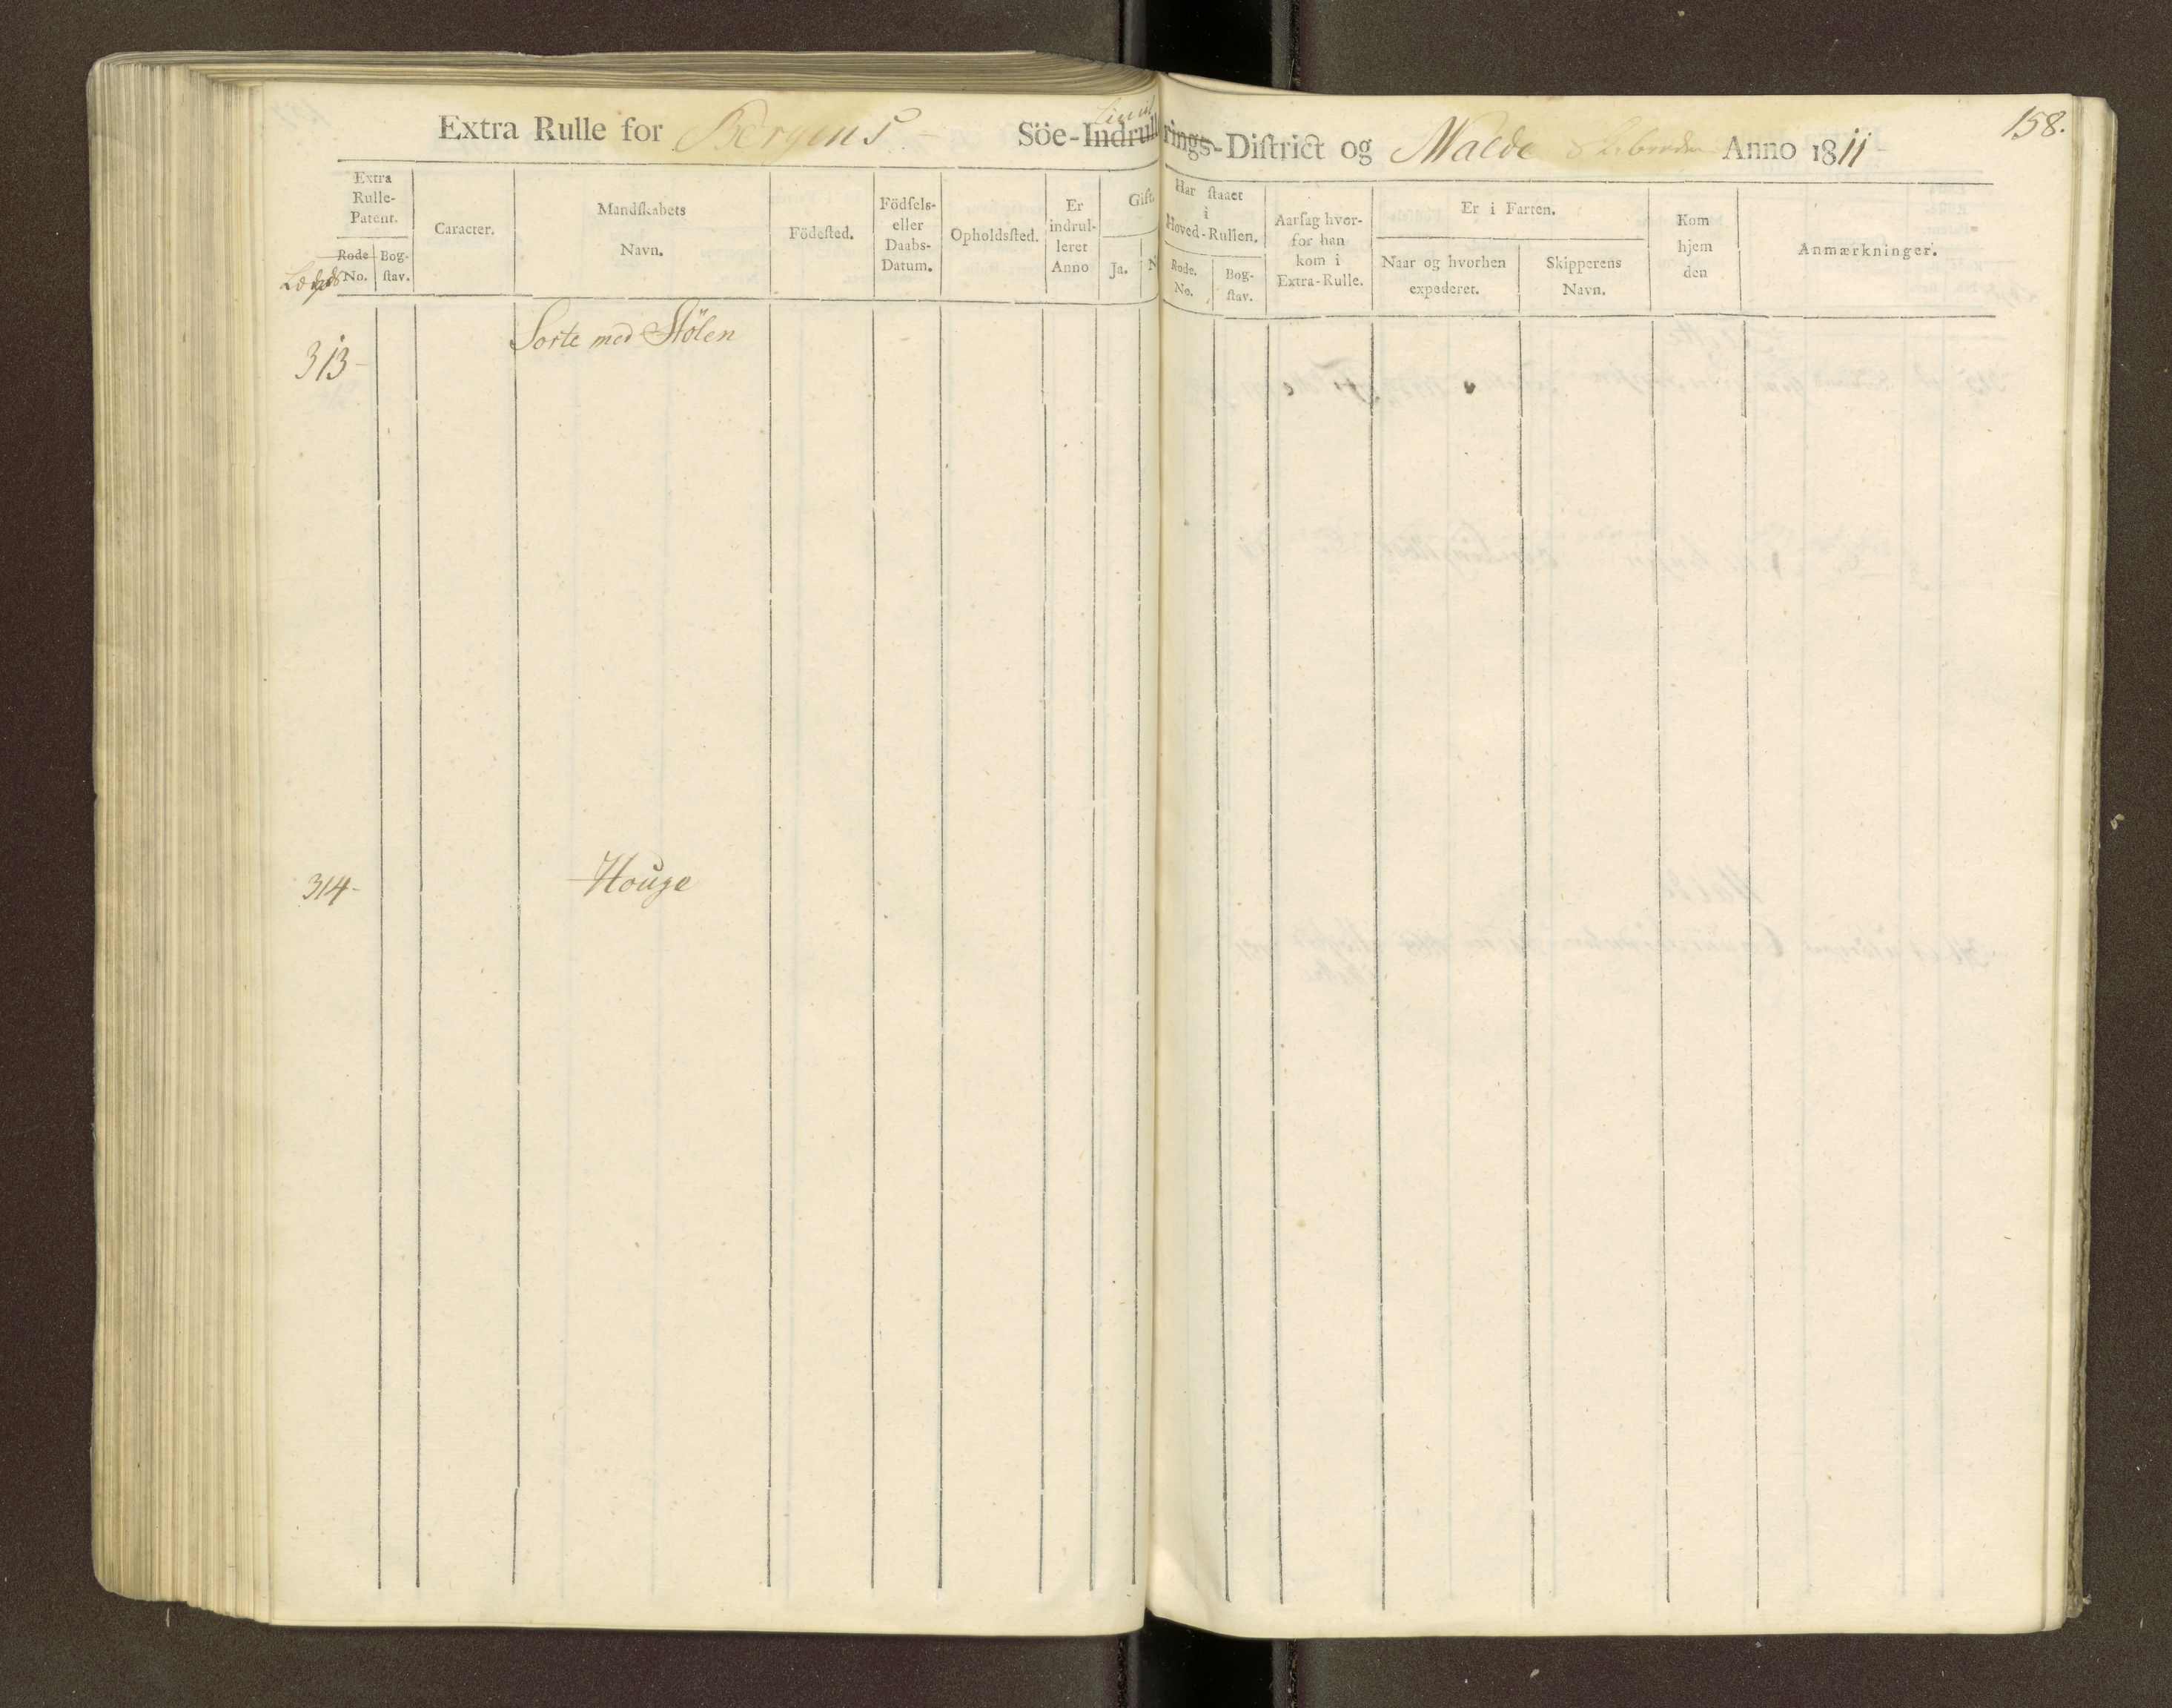 158.
Limit
Extra Rulle for Bergens Söe-Indrullerings-Diſtrict og Malde Anno 1811
Extra Rulle-Patent.
Rode No.
Lægds
Bog-ſtav.
Caracter.
Mandſkabets Navn.
Födeſted.
Födſels- eller Daabs-Datum.
Opholdsſted.
Er indrul-leret Anno
Gift.
Ja.
N
Har ſtaaet i Hoved-Rullen.
Rode. No.
Bog-ſtav.
Aarſag hvor-for han kom i Extra-Rulle.
Er i Farten.
Naar og hvorhen expederet.
Skipperens Navn.
Kom hjem den
Anmærkninger.
313- Sorte med Stölen
314- Houge